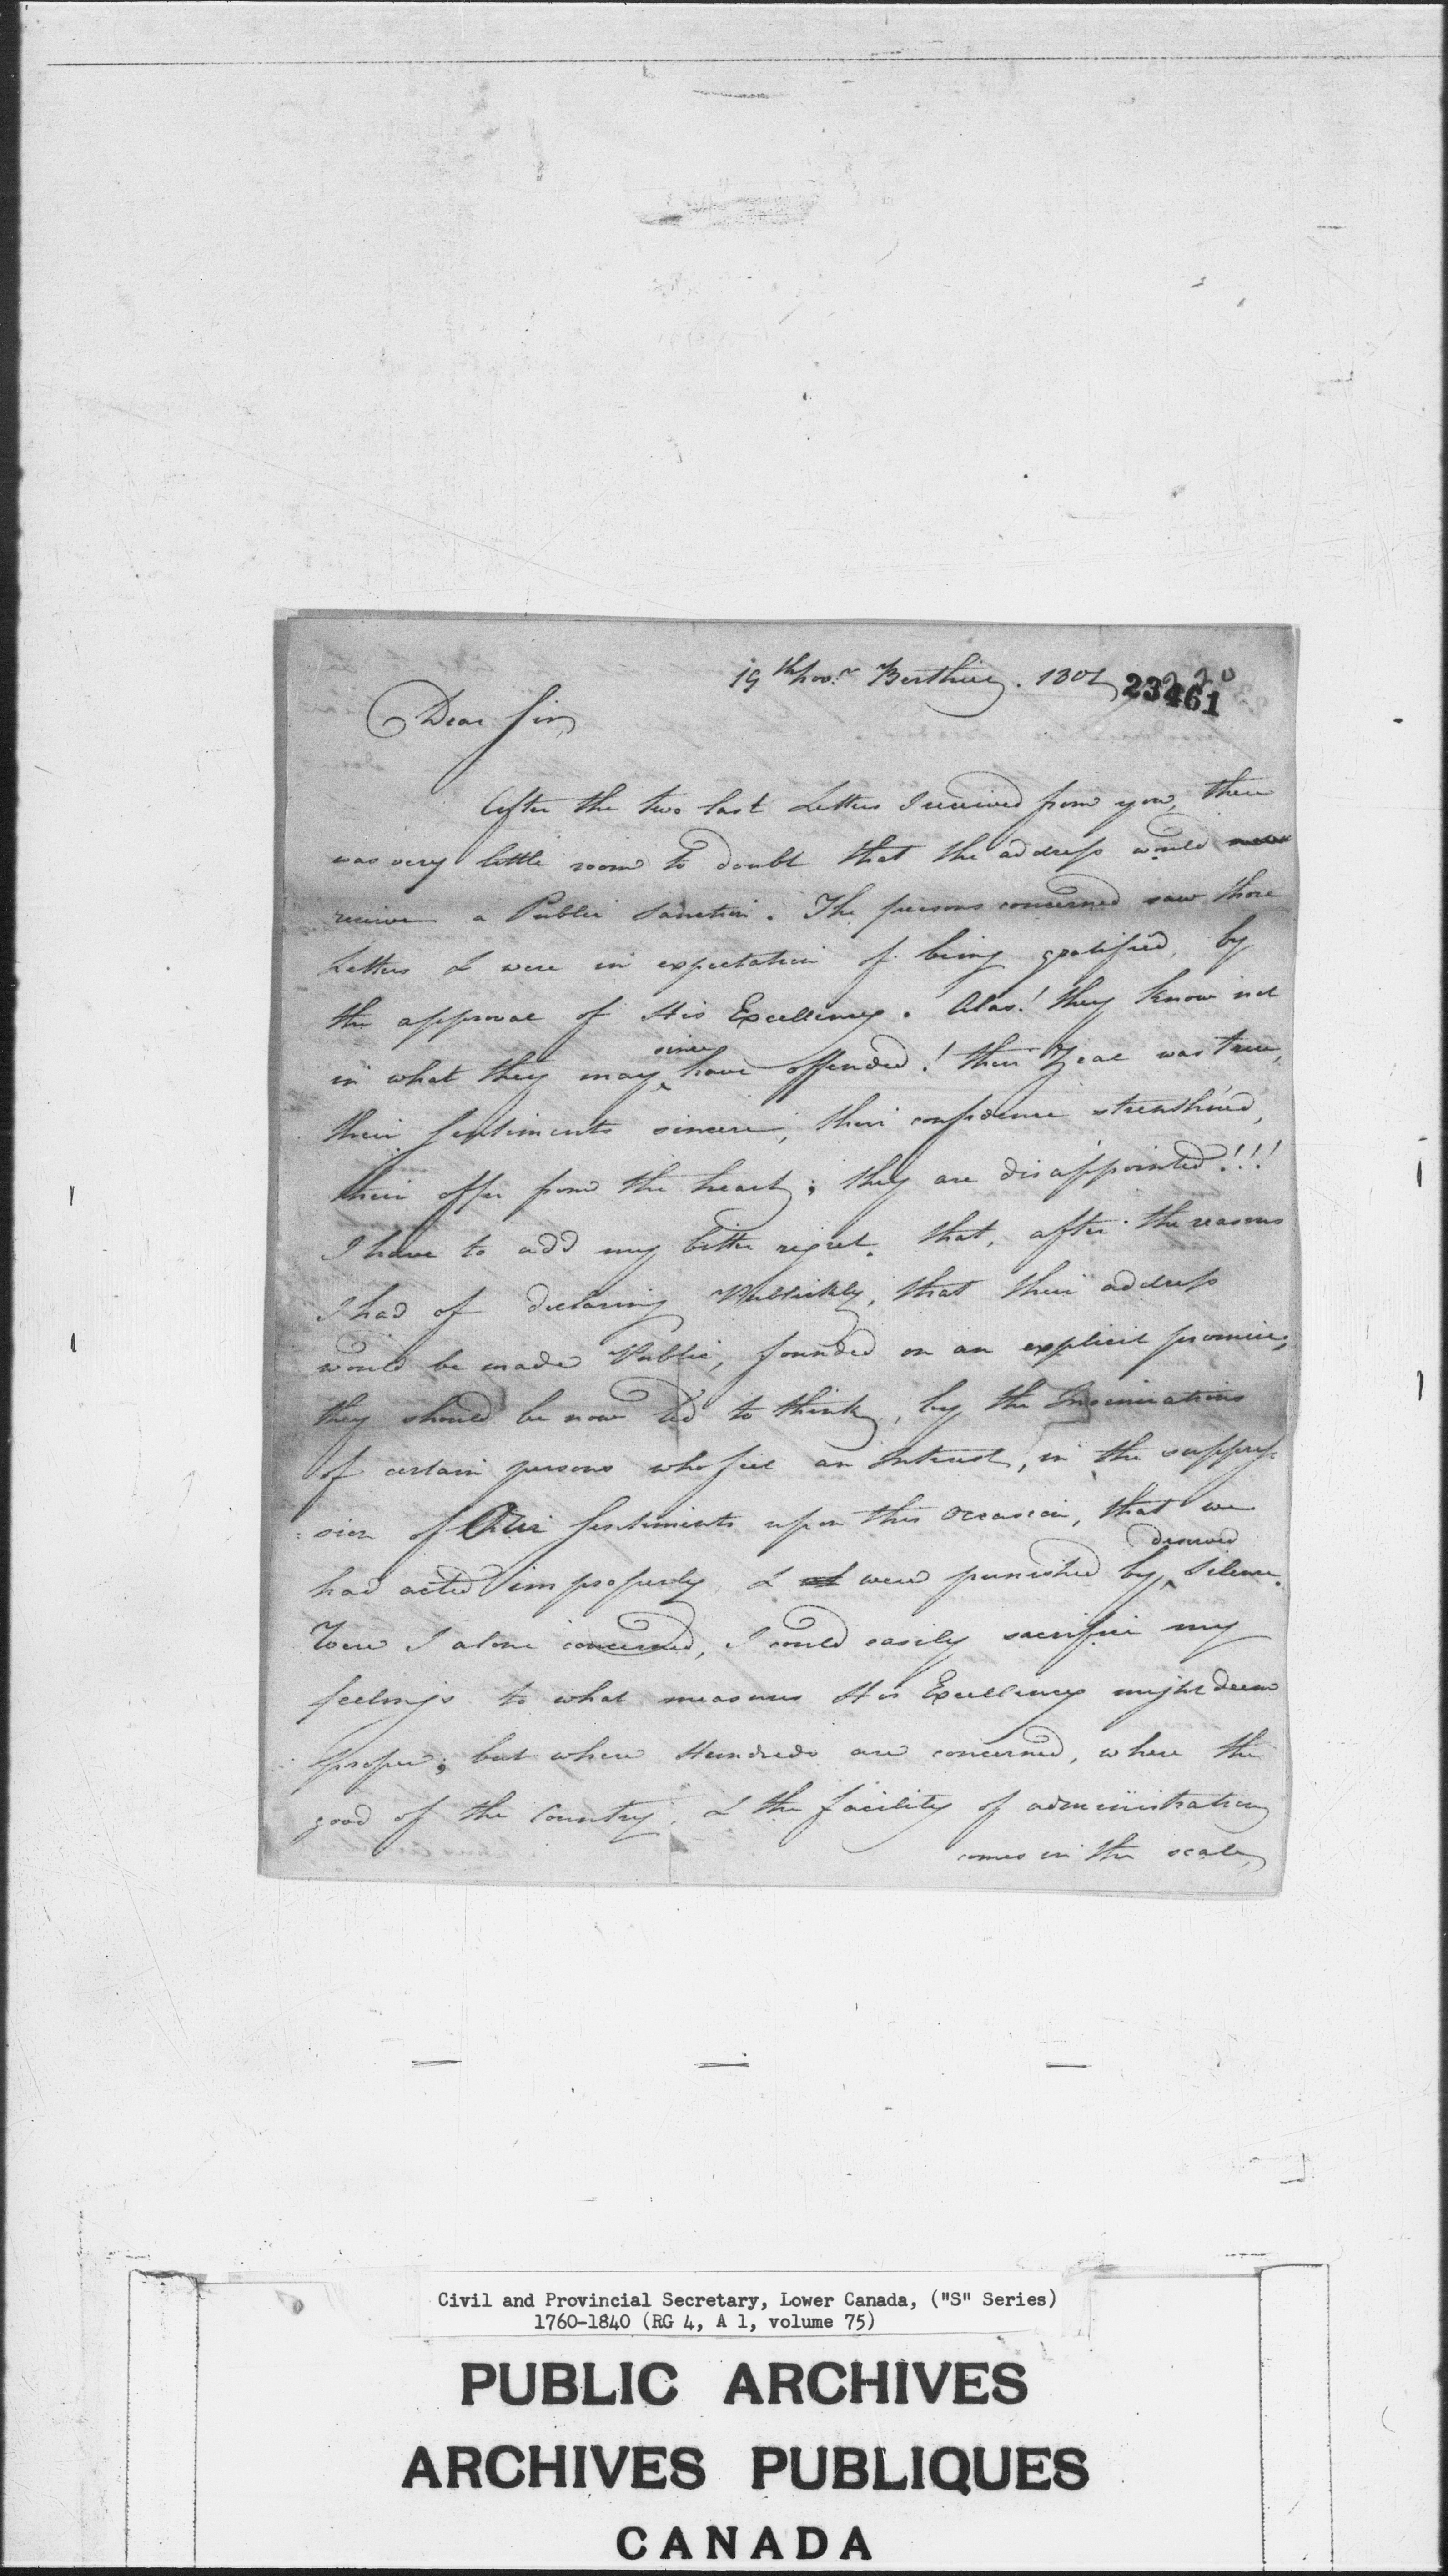 19th Nov.r Berthier. 1801
23461
Dear Sir,
After the two last Letters I received from you, there
was very little room to doubt that the address would
receive a Public Sanction. The persons concerned saw those
Letters & were in expectation of being gratified, by
the approval of His Excellency. Alas! they know not
in what they may since have offended! their Zeal was true,
their Sentiments sincere, their confidence strenthined,
their offer from the heart; they are disappointed!!!
I have to add my bitter regret. that, after the reasons
I had of declaring Publickly, that their address
would be made Public, founded on an explicit promise;
they should be now led to think, by the Insinuations
of certain persons who feel an Interest, in the suppres-
:sion of Our Sentiments upon this Occasion, that we
had acted improperly, & were punished by deserved Silence.
Were I alone concerned, I could easily sacrifice my
feelings to what measures His Excellency might deem
proper; but where Hundreds are concerned, where the
good of the Country, & the facility of administration
comes in the scale,
Civil and Provincial Secretary, Lower Canada, ("S" Series)
1760-1840 (RG 4, A 1, volume 75)
PUBLIC ARCHIVES
ARCHIVES PUBLIQUES
CANADA